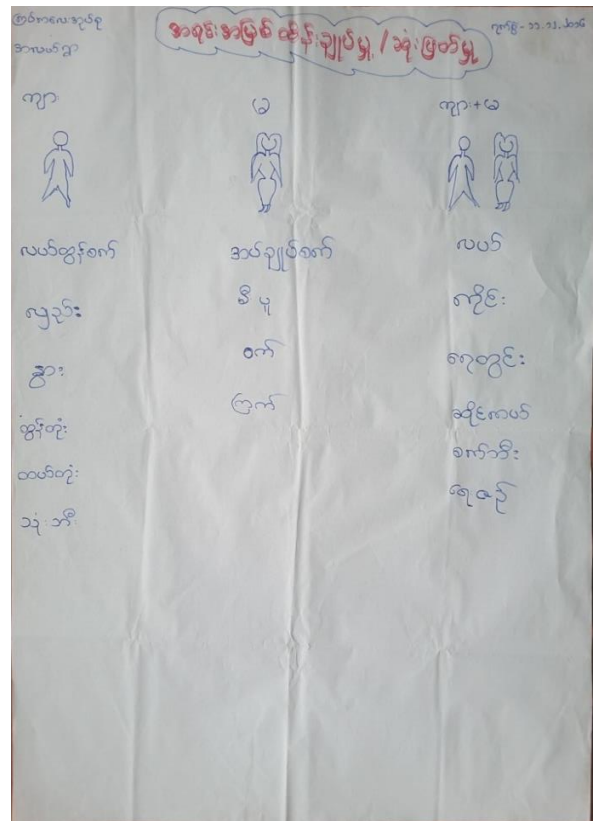 ကြပ်ကလေးအုပ်စု
အလယ်ရွာ
အရင်းအမြစ် ထိန်းချုပ်မှု / ဆုံးဖြတ်မှု
ရက်စွဲ - ၁၁.၁၂.၂၀၁၆
ကျား
မ
ကျား + မ
လယ်ထွန်စက်
လှည်း
နွား
ထွန်တုံး
ထယ်တုံး
သုံးဘီး
အပ်ချုပ်စက်
မီးပူ
ဝက်
ကြက်
လယ်
ကိုင်း
ရေတွင်း
ဆိုင်ကယ်
စက်ဘီး
ရေစည်